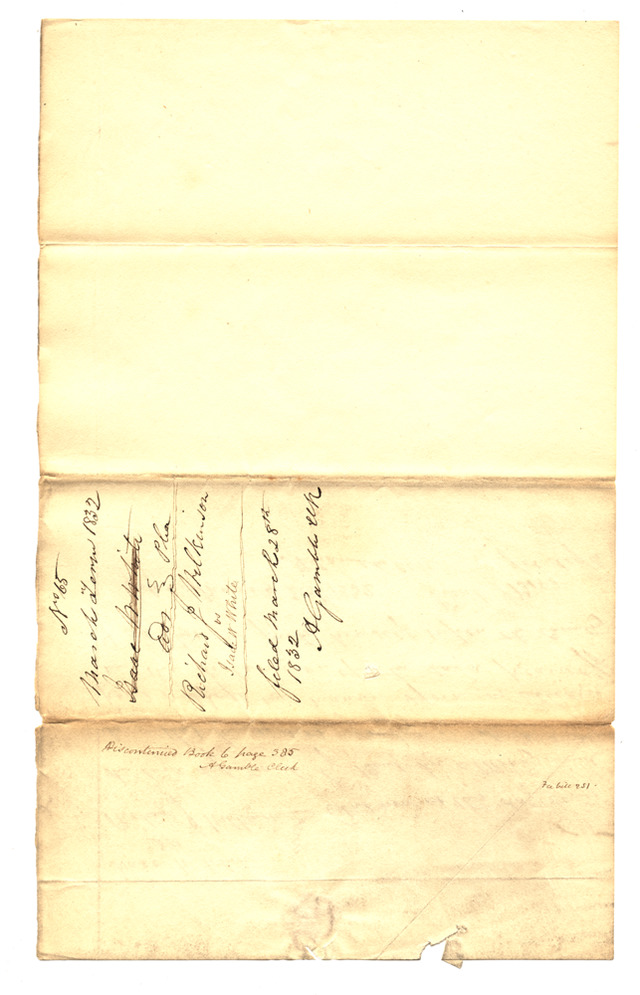 No 65
March Term 1832
Isaac W White
ads } Plea
Richard J Wilkinson
vs
Isaac W White
filed March 28th
1832
A Gamble clk
Discontinued Book 6 page 385
A Gamble Clerk
Fee bill 251.